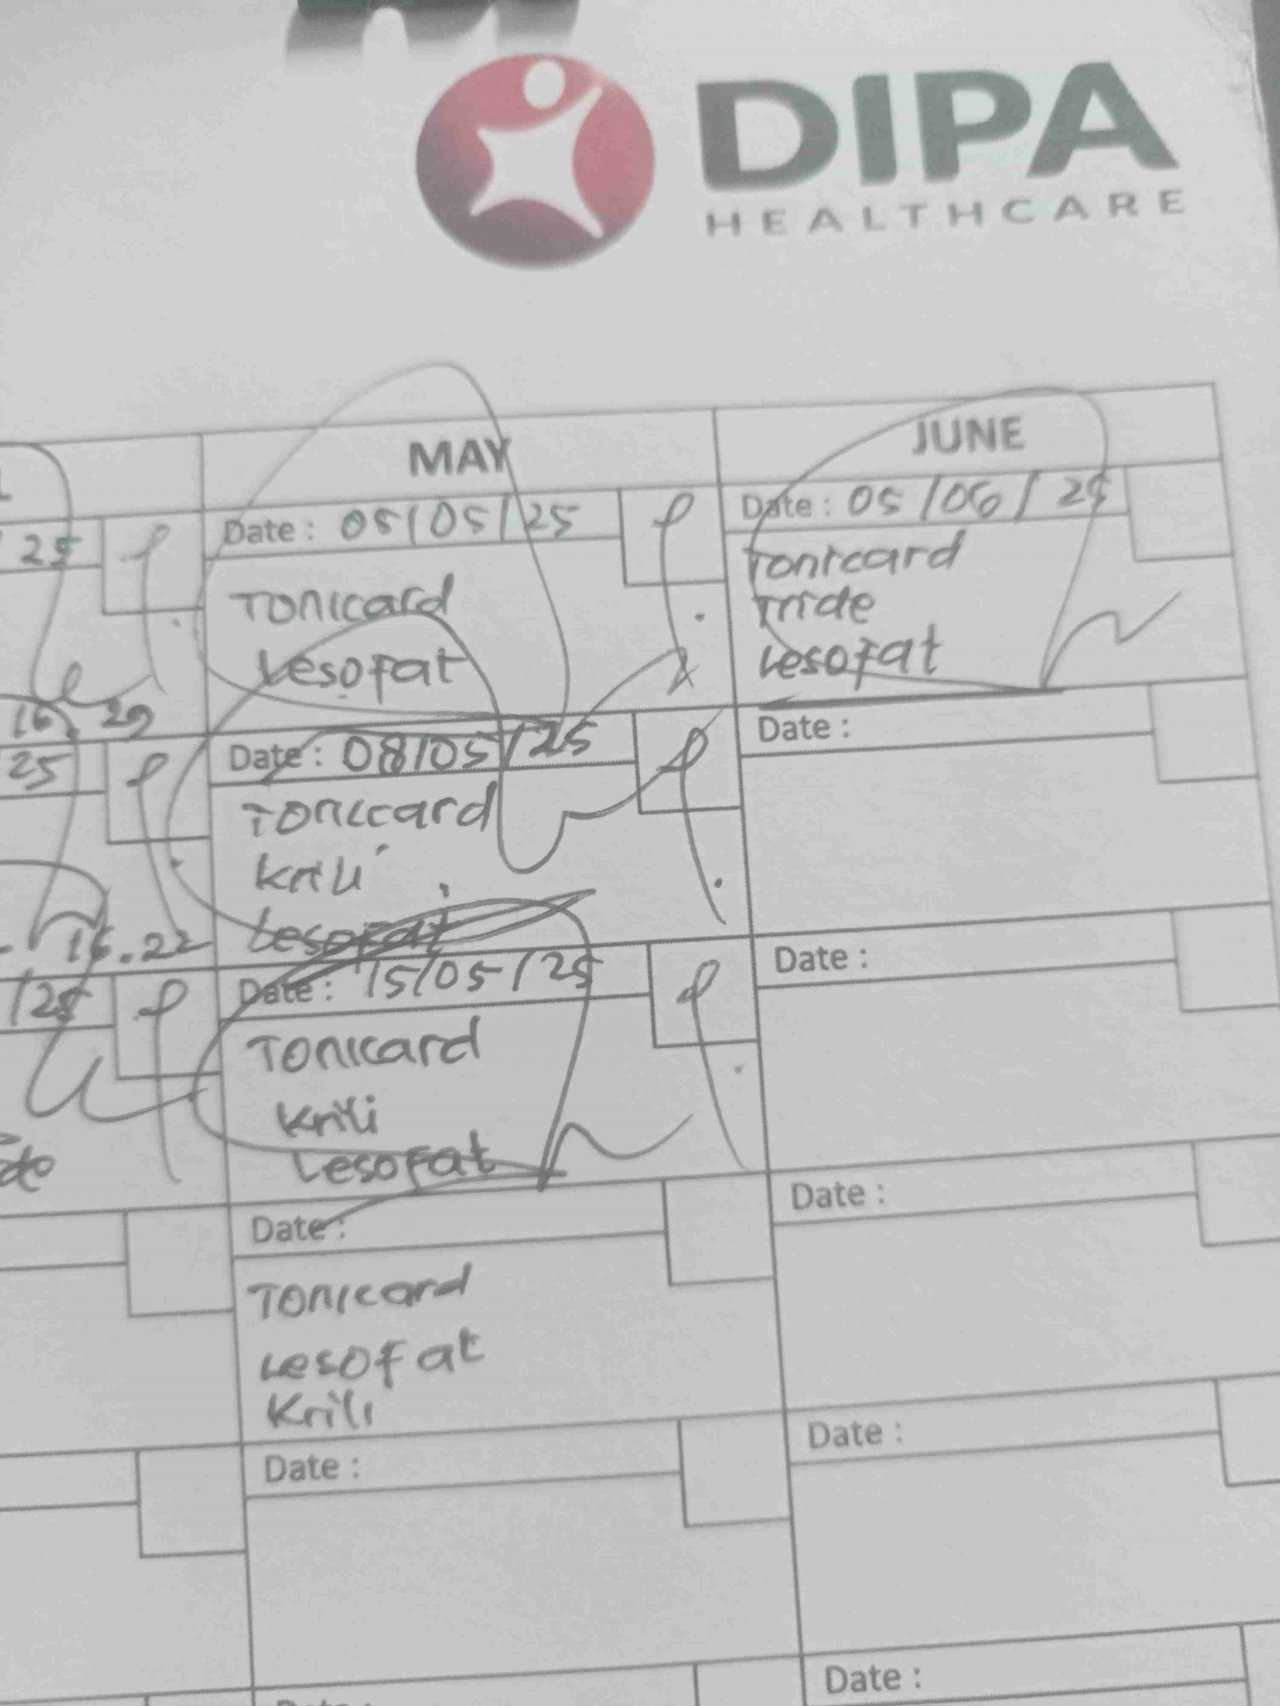 DIPA
HEALTHCARE
MAY
JUNE
25
Date : 05/05/25
Tonicard
Lesofat
Date : 05/06/25
Tonicard
Tride
Lesofat
16 29
25
Date : 08/05/25
Tonicard
Krili
Lesofat
Date :
16.22
/25
Date : 15/05/25
Tonicard
Krili
Lesofat
Date :
Date :
Tonicard
Lesofat
Krili
Date :
Date :
Date :
Date :